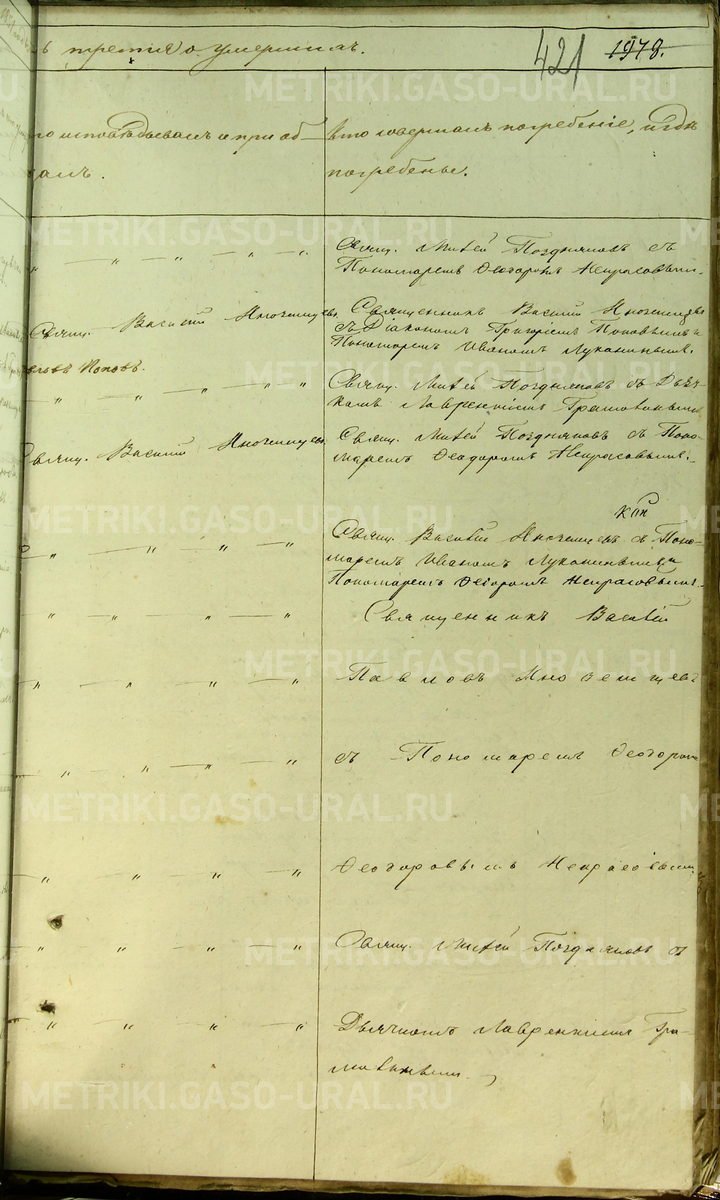 третия о умершихъ.
421 1978.
исповѣдывалъ и приоб-
щалъ.
Кто совершалъ погребеніе, и гдѣ
погребены.
Свящ. Матѳей Поздняковъ съ
Пономаремъ Ѳеодоромъ Некрасовымъ.
Свящ. Василій Мносищевъ.
Попов.
Священникъ Василій Мносищевъ
съ Діакономъ Григоріемъ Поповымъ и
Пономаремъ Иваномъ Луканинымъ.
Свящ. Матѳей Поздняковъ съ Дьяч-
комъ Лаврентіемъ
Свящ. Василій Мносищевъ.
Свящ. Матѳей Поздняковъ съ Поно-
маремъ Ѳеодоромъ Некрасовымъ.
Свящ. Василій Мносищевъ съ Поно-
маремъ Иваномъ Луканинымъ и
Пономаремъ Ѳеодоромъ Некрасовымъ.
Священникъ Василій
Павловъ Мносищевъ
съ Пономаремъ Ѳеодоромъ
Ѳеодоровымъ Некрасовымъ
Свящ. Матѳей Поздняковъ съ
Дьячкомъ Лаврентіемъ
METRIKI.GASO-URAL.RU